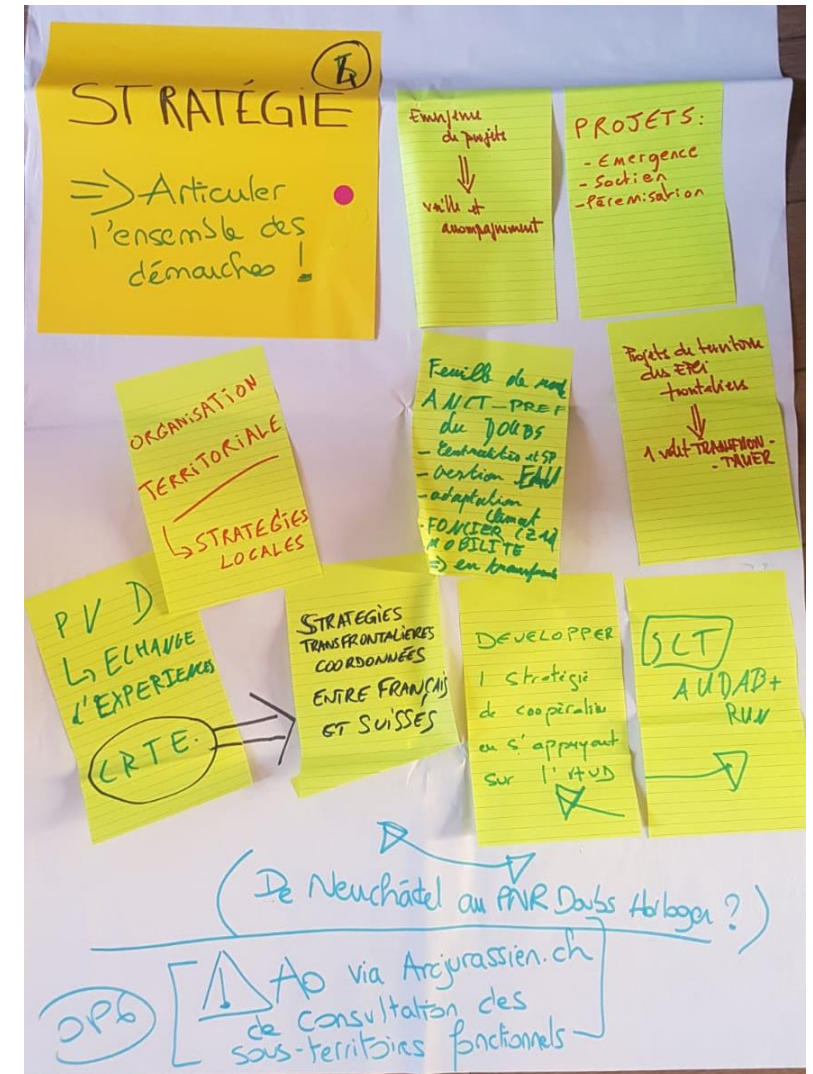 STRATÉGIE
=> Articuler
l'ensemble des
démarches !
Emergence
de projets
⇓
veille et
accompagnement
PROJETS:
- Emergence
- Soutien
- Pérennisation
ORGANISATION
TERRITORIALE
↳ STRATEGIES
LOCALES
Feuille de route
ANCT-PREF
du DOUBS
- et SP
- Gestion EAU
- adaptation
climat
- FONCIER (Z1)
MOBILITE
=> en
Projets de territoire
des EPCI
frontaliers
⇓
1 volet TRANSFRON-
-TALIER
PVD
↳ ECHANGE
d'EXPERIENCES
CRTE.
STRATEGIES
TRANSFRONTALIERES
COORDONNÉES
ENTRE FRANÇAIS
ET SUISSES
DEVELOPPER
1 stratégie
de coopération
en s'appuyant
sur l'AUD
SCT
AUDAB+
RUN
(De Neuchâtel au PNR Doubs Horloger ?)
OP6
[⚠ AO via Arcjurassien.ch
de consultation des
sous-territoires fonctionnels]